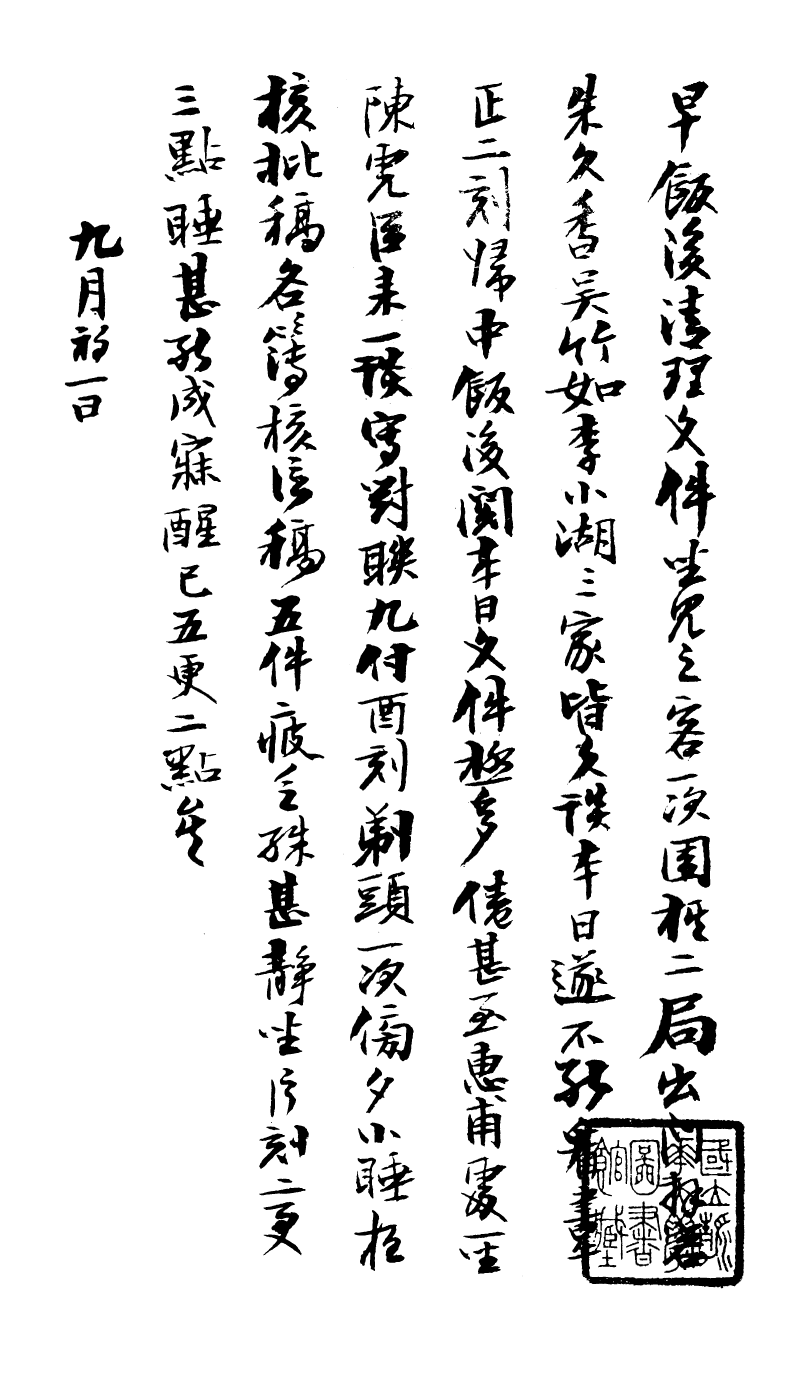 早飯後清理文件坐見之客一次圍棋二局出門拜
朱久香吳竹如李小湖三家皆久談本日遂不能看書午
正二刻歸中飯後閱本日文件極多倦甚至惠甫處一坐
陳虎臣來一談寫對聯九付酉刻剃頭一次傍夕小睡夜
核批稿各簿核信稿五件疲乏殊甚靜坐片刻二更
三點睡甚能成寐醒已五更二點矣
九月初一日
國立
圖書
館藏